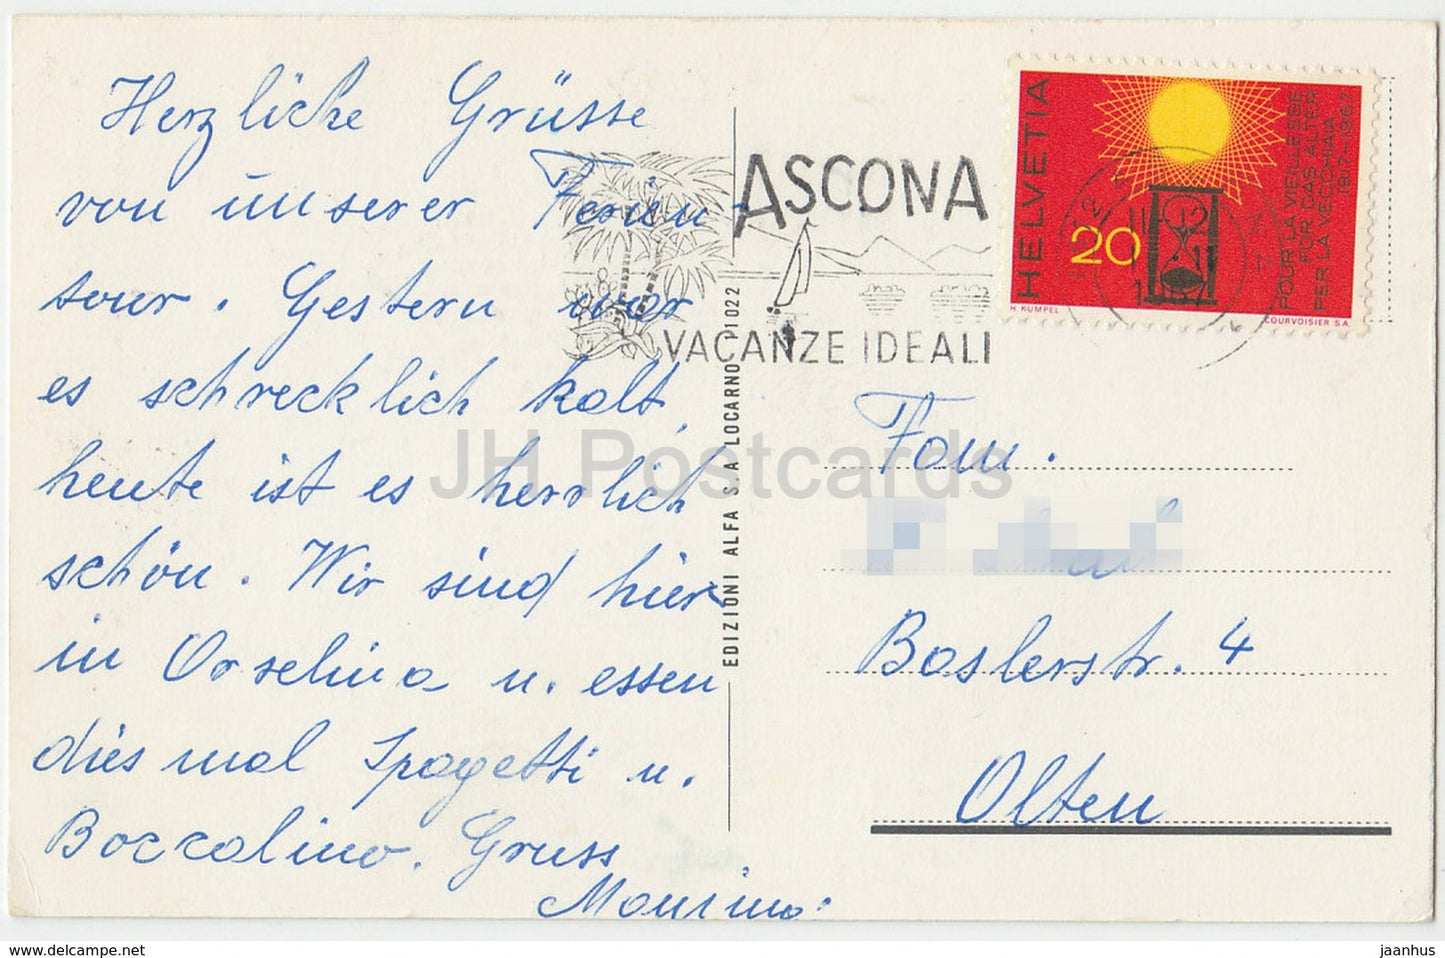 Herzliche Grüsse
von unserer Ferien-
tour. Gestern war
es schrecklich kalt,
heute ist es herrlich
schön. Wir sind hier
in Orselina u. essen
diesmal Spagetti u.
Boccalino. Gruss
ASCONA
VACANZE IDEALI
HELVETIA
20
POUR LA VIEILLESSE
FÜR DAS ALTER
PER LA VECCHIAIA
1917-1967
H. KÜMPEL
COURVOISIER S.A.
EDIZIONI ALFA S.A LOCARNO 1022
Fam.
Baslerstr. 4
Olten
JH Postcards
https://www.delcampe.net
jaanhus